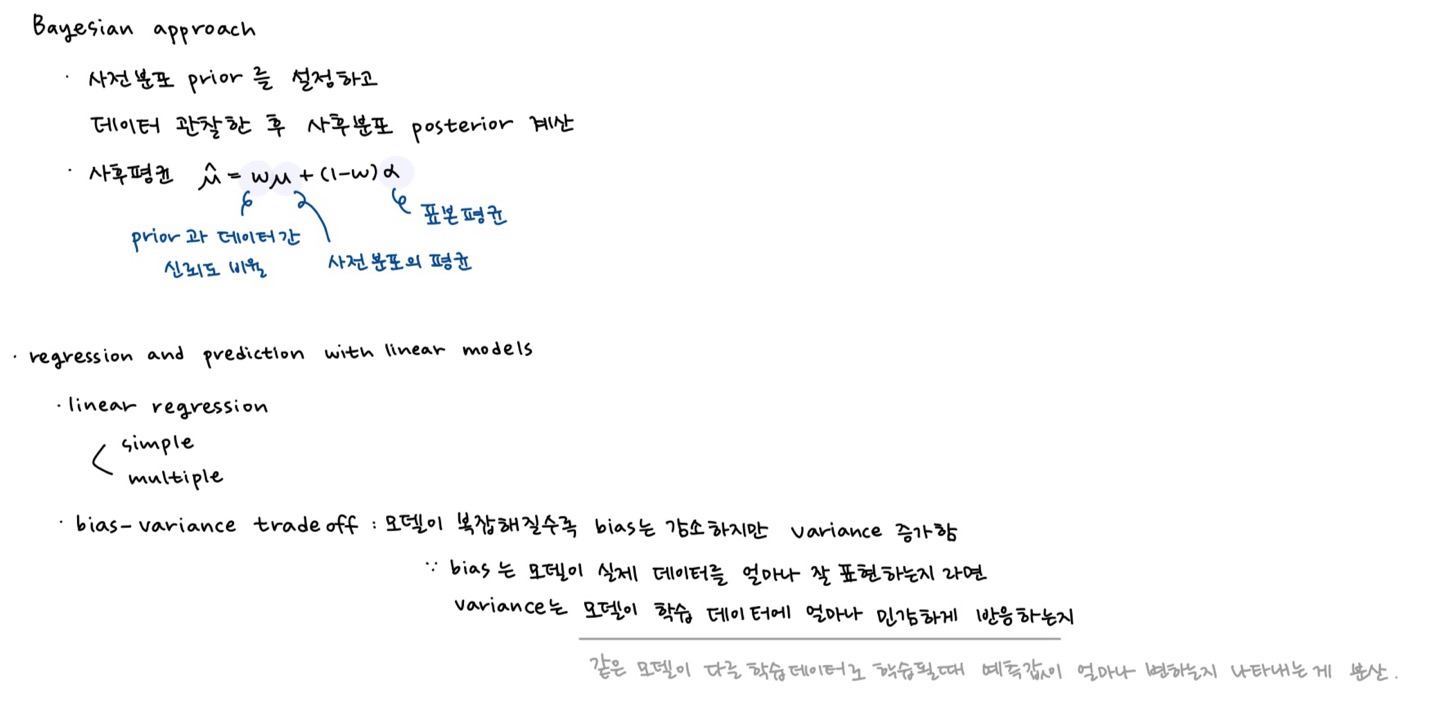 Bayesian approach
· 사전분포 prior를 설정하고
데이터 관찰한 후 사후분포 posterior 계산
· 사후평균 μ̂ = wμ + (1-w)α
표본평균
prior과 데이터간
신뢰도 비율
사전분포의 평균
· regression and prediction with linear models
· linear regression
simple
multiple
· bias-variance trade off : 모델이 복잡해질수록 bias는 감소하지만 variance 증가함
∵ bias는 모델이 실제 데이터를 얼마나 잘 표현하는지 라면
variance는 모델이 학습 데이터에 얼마나 민감하게 반응하는지
같은 모델이 다른 학습데이터로 학습될때 예측값이 얼마나 변하는지 나타내는 게 분산.